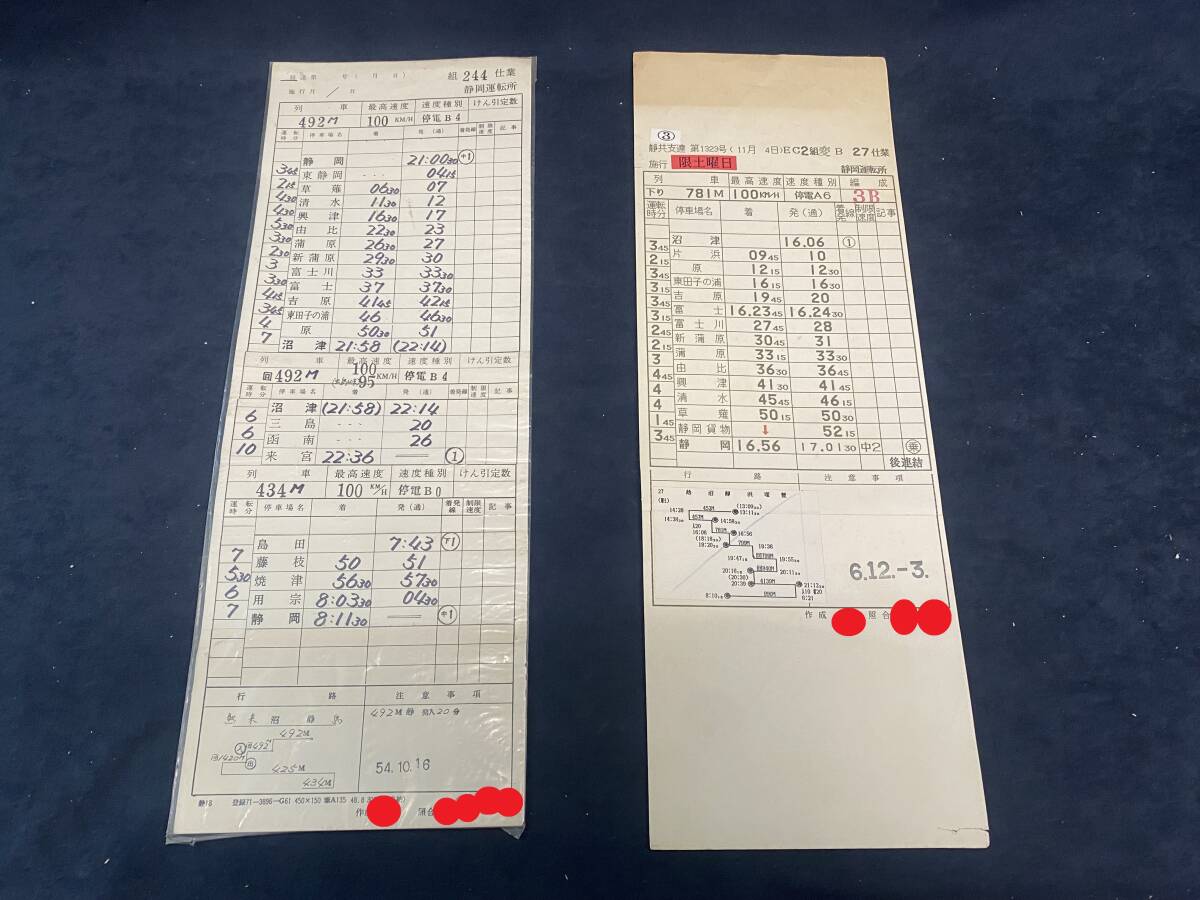 組 244 仕業
施行 月 / 日
静岡運転所
列 車 最高速度 速度種別 けん引定数
492M 100 KM/H 停電B4
運転時分 停車場名 着 発(通) 着発線 制限速度 記事
静岡 21:00 30
345 東静岡 --- 04 15
215 草薙 06 30 07
430 清水 11 30 12
430 興津 16 30 17
530 由比 22 30 23
330 蒲原 26 30 27
230 新蒲原 29 30 30
3 富士川 33 33 30
330 富士 37 37 30
415 吉原 41 45 42 15
345 東田子の浦 46 46 30
4 原 50 30 51
7 沼津 21:58 (22:14)
列 車 最高速度 速度種別 けん引定数
回492M 100 95 KM/H 停電B4
運転時分 停車場名 着 発(通) 着発線 制限速度 記事
沼津 (21:58) 22:14
6 三島 --- 20
6 函南 --- 26
10 来宮 22:36 ①
列 車 最高速度 速度種別 けん引定数
434M 100 KM/H 停電B0
運転時分 停車場名 着 発(通) 着発線 制限速度 記事
島田 7:43 下1
7 藤枝 50 51
530 焼津 56 30 57 30
6 用宗 8:03 30 04 30
7 静岡 8:11 30
行路 注意事項
来 沼 静 島
492M静 20分
492M
回492M
回1420M
425M
434M
54.10.16
静18 登録71-3896-G61 450×150
③
静共支達 第1323号(11月 4日)EC2組変B 27仕業
施行 限土曜日 静岡運転所
列 車 最高速度 速度種別 編成
下り 781M 100KM/H 停電A6 3B
運転時分 停車場名 着 発(通) 着発線 制限速度 記事
沼津 16.06 ①
345 片浜 09 45 10
215 原 12 15 12 30
345 東田子の浦 16 15 16 30
315 吉原 19 45 20
345 富士 16.23 45 16.24 30
315 富士川 27 45 28
245 新蒲原 30 45 31
215 蒲原 33 15 33 30
3 由比 36 30 36 45
445 興津 41 30 41 45
4 清水 45 45 46 15
4 草薙 50 15 50 30
145 静岡貨物 ↓ 52 15
345 静岡 16.56 17.01 30 中2 乗
後連結
行路 注意事項
6.12.-3.
作成 照合